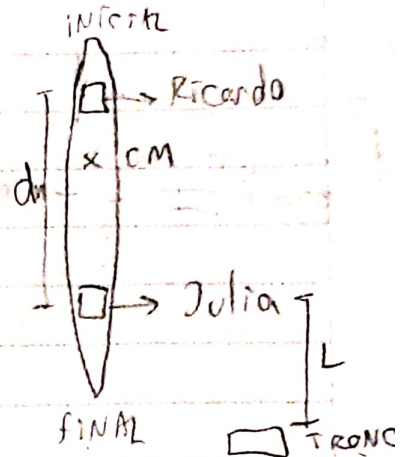 INICIAL
Ricardo
x CM
dm
Julia
L
FINAL
TRONC